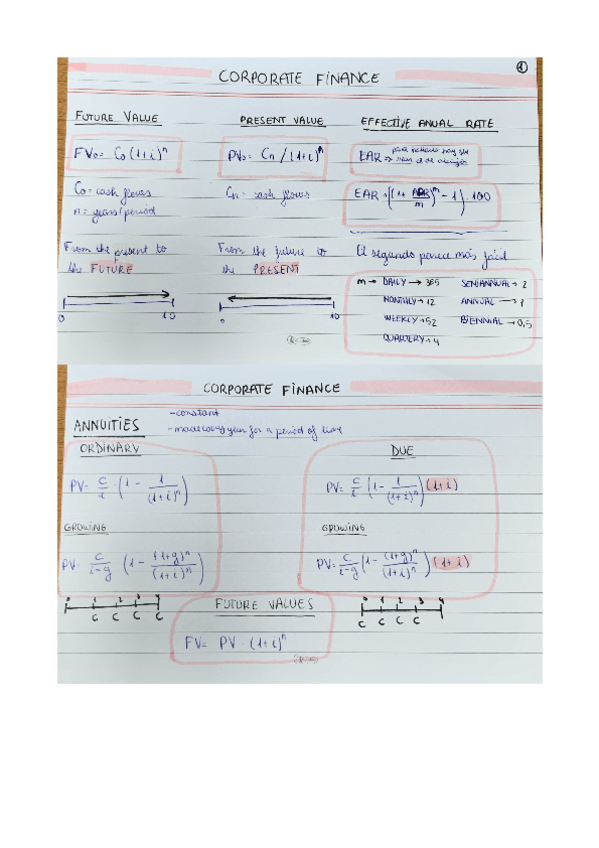 CORPORATE FINANCE
FUTURE VALUE
FV₀ = C₀ (1+i)ⁿ
C₀ = cash flows
n = years/period
From the present to
the FUTURE
0 10
PRESENT VALUE
PV₀ = Cn / (1+i)ⁿ
Cn = cash flows
From the future to
the PRESENT
0 10
EFFECTIVE ANUAL RATE
EAR →
EAR = ((1 + APR/m)ᵐ - 1) · 100
El segundo parece más fácil
m → DAILY → 365
MONTHLY → 12
WEEKLY → 52
QUARTERLY → 4
SEMIANNUAL → 2
ANNUAL → 1
BIENNIAL → 0,5
CORPORATE FINANCE
ANNUITIES
- constant
- made every year for a period of time
ORDINARY
PV = C/i · (1 - 1/(1+i)ⁿ)
GROWING
PV = C/i-g (1 - (1+g)ⁿ/(1+i)ⁿ)
0 1 2 3 4
C C C C
DUE
PV = C/i (1 - 1/(1+i)ⁿ) (1+i)
GROWING
PV = C/i-g (1 - (1+g)ⁿ/(1+i)ⁿ) (1+i)
0 1 2 3 4
C C C C
FUTURE VALUES
FV = PV · (1+i)ⁿ